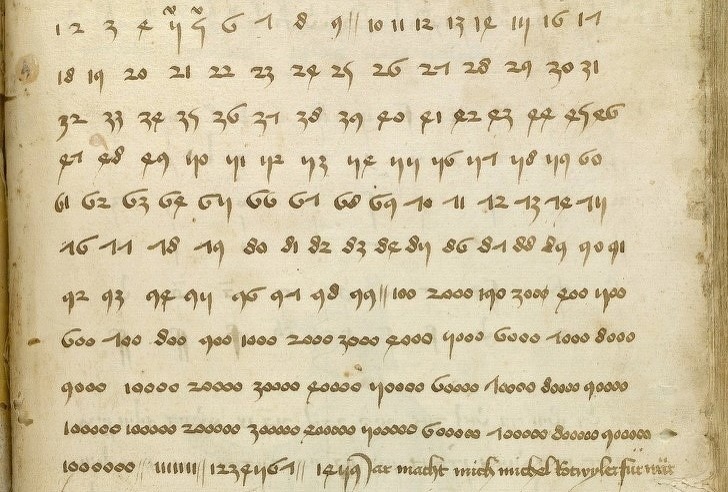 1 2 3 4 5 5 6 7 8 9 // 10 11 12 13 14 15 16 17
18 19 20 21 22 23 24 25 26 27 28 29 30 31
32 33 34 35 36 37 38 39 40 41 42 43 44 45 46
47 48 49 50 51 52 53 54 55 56 57 58 59 60
61 62 63 64 65 66 67 68 69 70 71 72 73 74 75
76 77 78 79 80 81 82 83 84 85 86 87 88 89 90 91
92 93 94 95 96 97 98 99 // 100 2000 190 3000 400 500
600 700 800 900 1000 2000 3000 4000 5000 6000 7000 8000
9000 10000 20000 30000 40000 50000 60000 70000 80000 90000
100000 100000 200000 300000 400000 500000 600000 700000 800000 900000
1000000 // // 1234567 // 1459 Jar macht mich michel Rotwyler für wär